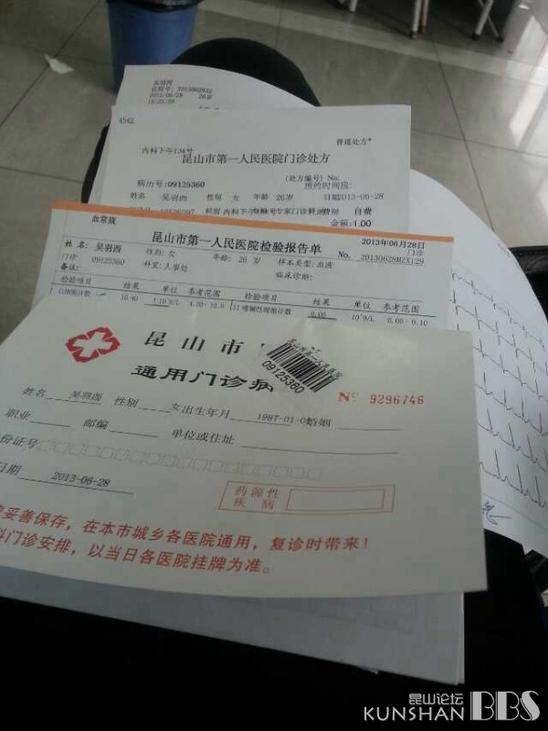 吴羽西
2013/06/28 26岁
4542
普通处方
内科下午134号
昆山市第一人民医院门诊处方
(处方编号) No:
预约时间段:
病历号: 09125360 姓名 吴羽西 性别 女 年龄 26岁 日期2013-06-28
自费
金额:1.00
血常规
昆山市第一人民医院检验报告单
2013年06月28日
门诊
姓名: 吴羽西 性别: 女 年龄: 26 岁 样本类型: 血液 No. 20130628MZX129
门诊 09125360 科室: 人事处 临床诊断:
备注:
检验项目 结果 单位 参考范围 检验项目 结果 单位 参考范围
白细胞计数 10.40 10^9/L 11 嗜碱性粒细胞计数 0.00 10^9/L 0.00-0.10
昆山市
通用门诊病
09125360
№ 9296746
姓名 吴羽西 性别 女 出生年月 1987-01-0 婚姻
职业 邮编 单位或住址
份证号
日期 2013-06-28
药源性
疾病
妥善保存，在本市城乡各医院通用，复诊时带来！
科门诊安排，以当日各医院挂牌为准。
昆山论坛
KUNSHAN BBS